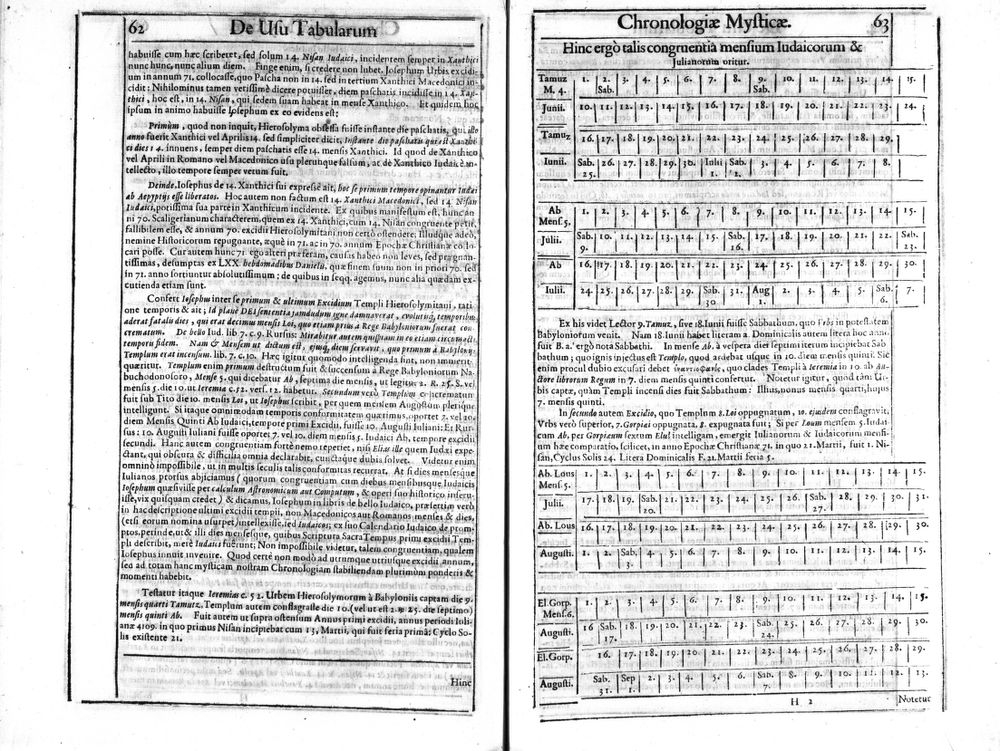 62 De Usu Tabularum
habuisse cum hæc scriberet, sed solum 14. Nisan Iudaici, incidentem semper in Xanthici
nunc hunc, nunc alium diem. Finge enim, si credere non lubet, Iosephum Urbis excidi-
um in annum 71. collocasse, quo Pascha non in 14. sed in tertium Xanthici Macedonici in-
cidit: Nihilominus tamen verissimè dicere potuisset, diem paschatis incidisse in 14. Xan-
thici, hoc est, in 14. Nisan, qui sedem suam habeat in mense Xanthico. Et quidem hoc
ipsum in animo habuisse Iosephum ex eo evidens est:
Primùm, quod non inquit, Hierosolyma obsessa fuisse instante die paschatis, qui isto
anno fuerit Xanthici vel Aprilis 14. sed simpliciter dicit, Instante die paschatis qui est Xanthi-
ci dies 14. innuens, semper diem paschatis esse 14. mensis Xanthici. Id quod de Xanthico
vel Aprili in Romano vel Macedonico usu plerunque falsum, at de Xanthico Iudaicè in-
tellecto, illo tempore semper verum fuit.
Deinde, Iosephus de 14. Xanthici sui expressè ait, hoc se primum tempore opinantur Iudæi
ab Aegyptijs esse liberatos. Hoc autem non factum est 14. Xanthici Macedonici, sed 14 Nisan
Iudaici, potissima sua parte in Xanthicum incidente. Ex quibus manifestum est, hunc an-
ni 70. Scaligerianum characterem, quem ex 14. Xanthici, cum 14. Nisan congruente petit,
fallibilem esse, & annum 70. excidii Hierosolymitani non certò ostendere. Illudque adeò,
nemine Historicorum repugnante, æquè in 71. ac in 70. annum Epochæ Christianæ col-
locari posse. Cur autem hunc 71. ego alteri præferam, causas habeo non leves, sed prægnan-
tissimas, desumptas ex LXX. hebdomadibus Danielis, quæ finem suum non in priori 70. sed
in 71. anno sortiuntur absolutissimum; de quibus in seqq. agemus, nunc alia quædam ex-
cutienda etiam sunt.
Confert Iosephus inter se primum & ultimum Excidium Templi Hierosolymitani, rati-
one temporis & ait; Id planè DEI sententiâ jamdudum igne damnaverat, evolutisq; temporibus
aderat fatalis dies, qui erat decimus mensis Loi, quo etiam prius a Rege Babyloniorum fuerat con-
crematum. De bello Iud. lib. 7. c. 9. Rursus: Mirabitur autem quispiam in eo etiam circumacti
temporis fidem. Nam & Mensem ut dictum est, ejusq; diem servavit, quo primum à Babylonijs
Templum erat incensum. lib. 7. c. 10. Hæc igitur quomodo intelligenda sint, non immeritò
quæritur. Templum enim primum destructum fuit & succensum à Rege Babyloniorum Na-
buchodonosoro, Mense 5. qui dicebatur Ab, septima die mensis, ut legitur 2. R. 25. S. vel
mensis 5. die 10. ut Ieremiæ c. 52. vers. 12. habetur. Secundum verò Templum concrematum
fuit sub Tito die 10. mensis Loi, ut Iosephus scribit, per quem mensem Augustum plerique
intelligunt. Si itaque omnimodam temporis conformitatem quærimus, oportet 7. vel 10.
diem Mensis Quinti Ab Iudaici, tempore primi Excidii, fuisse 10. Augusti Iuliani: Et Rur-
sus: 10. Augusti Iuliani fuisse oportet 7. vel 10. diem mensis 5. Iudaici Ab, tempore excidii
secundi. Hanc autem congruentiam fortè nemo reperiet, nisi Elias ille quem Iudæi expe-
ctant, qui obscura & difficilia omnia declarabit, cunctaque dubia solvet. Videtur enim
omninò impossibile, ut in multis seculis talis conformitas recurrat. At si dies mensesque
Iulianos prorsus abjiciamus (quorum congruentiam cum diebus mensibusque Iudaicis
Iosephum quæsivisse per calculum Astronomicum aut Computum, & operi suo historico inseru-
isse, vix quisquam credet) & dicamus, Iosephum in libris de bello Iudaico, præsertim verò
in hac descriptione ultimi excidii templi, non Macedonicos aut Romanos menses & dies,
(etsi eorum nomina usurpet) intellexisse, sed Iudaicos; ex suo Calendario Iudaico de prom-
ptos, perinde, ut & illi dies mensesque, quibus Scriptura Sacra Tempus primi excidii Tem-
pli describit, merè Iudaici fuerunt; Non impossibile videtur, talem congruentiam, qualem
Iosephus innuit invenire. Quod certè non modò ad utrumque utriusque excidii annum,
sed ad totam hanc mysticam nostram Chronologiam stabiliendam plurimùm ponderis &
momenti habebit.
Testatur itaque Ieremias c. 52. Urbem Hierosolymorum à Babyloniis captam die 9.
mensis quarti Tamuz. Templum autem conflagrasse die 10. (vel ut est 2. R. 25. die septimo)
mensis quinti Ab. Fuit autem ut supra ostensum Annus primi excidii, annus periodi Iuli-
anæ 4109. in quo primus Nisan incipiebat cum 13. Martii, qui fuit feria prima: Cyclo So-
lis existente 21.
Hinc
Chronologiæ Mysticæ. 63
Hinc ergò talis congruentia mensium Iudaicorum &
Julianorum oritur.
Tamuz M. 4. 1. 2. Sab. 3. 4. 5. 6. 7. 8. 9. Sab. 10. 11. 12. 13. 14. 15.
Junii. 10. 11. 12. 13. 14. 15. 16. 17. 18. 19. 20. 21. 22. 23. 24.
Tamuz 16. 17. 18. 19. 20. 21. 22. 23. 24. 25. 26. 27. 28. 29.
Iunii. Sab. 25. 26. 27. 28. 29. 30. Iulii 1. Sab. 2. 3. 4. 5. 6. 7. 8.
Ab Mens. 5. 1. 2. 3. 4. 5. 6. 7. 8. 9. 10. 11. 12. 13. 14. 15.
Julii. Sab. 9. 10. 11. 12. 13. 14. 15. Sab. 16. 17. 18. 19. 20. 21. 22. Sab. 23.
Ab 16. 17. 18. 19. 20. 21. 22. 23. 24. 25. 26. 27. 28. 29. 30.
Iulii. 24. 25. 26. 27. 28. 29. Sab. 30. 31. Aug 1. 2. 3. 4. 5. Sab. 6. 7.
Ex his videt Lector 9. Tamuz, sive 18. Iunii fuisse Sabbathum, quo Urbs in potestatem
Babyloniorum venit. Nam 18. Iunii habet literam a. Dominicalis autem litera hoc anno
fuit B. a. ergò nota Sabbathi. In mense Ab. à vespera diei septimi iterum incipiebat Sab-
bathum; quo ignis injectus est Templo, quod ardebat usque in 10. diem mensis quinti. Sic
enim procul dubio excusari debet ἐναντιοφανὲς, quo clades Templi à Ieremia in 10. ab Au-
ctore librorum Regum in 7. diem mensis quinti confertur. Notetur igitur, quod tàm Ur-
bis captæ, quàm Templi incensi dies fuit Sabbathum: Illius, nonus mensis quarti, hujus
7. mensis quinti.
In secundo autem Excidio, quo Templum 8. Loi oppugnatum, 10. ejusdem conflagravit,
Urbs verò superior, 7. Gorpiei oppugnata, 8. expugnata fuit; Si per Loum mensem 5. Iudai-
cum Ab, per Gorpieum sextum Elul intelligam, emergit Iulianorum & Iudaicorum mensi-
um hæc computatio, scilicet, in anno Epochæ Christianæ 71. in quo 21. Martii, fuit 1. Ni-
san, Cyclus Solis 24. Litera Dominicalis F. 21. Martii feria 5.
Ab. Lous Mens. 5. 1. 2. 3. 4. 5. 6. 7. 8. 9. 10. 11. 12. 13. 14. 15.
Julii. 17. 18. 19. Sab. 20. 21. 22. 23. 24. 25. 26. Sab. 27. 28. 29. 30. 31.
Ab. Lous 16. 17. 18. 19. 20. 21. 22. 23. 24. 25. 26. 27. 28. 29. 30.
Augusti. 1. 2. Sab. 3. 4. 5. 6. 7. 8. 9. 10. 11. 12. 13. 14. 15.
El. Gorp. Mens. 6. 1. 2. 3. 4. 5. 6. 7. 8. 9. 10. 11. 12. 13. 14. 15.
Augusti. 16 Sab. 17. 18. 19. 20. 21. 22. 23. Sab. 24. 25. 26. 27. 28. 29. 30.
El. Gorp. 16. 17. 18. 19. 20. 21. 22. 23. 24. 25. 26. 27. 28. 29.
Augusti. Sab. 31. Sep 1. 2. 3. 4. 5. 6. Sab. 7. 8. 9. 10. 11. 12. 13.
H 2 Notetur